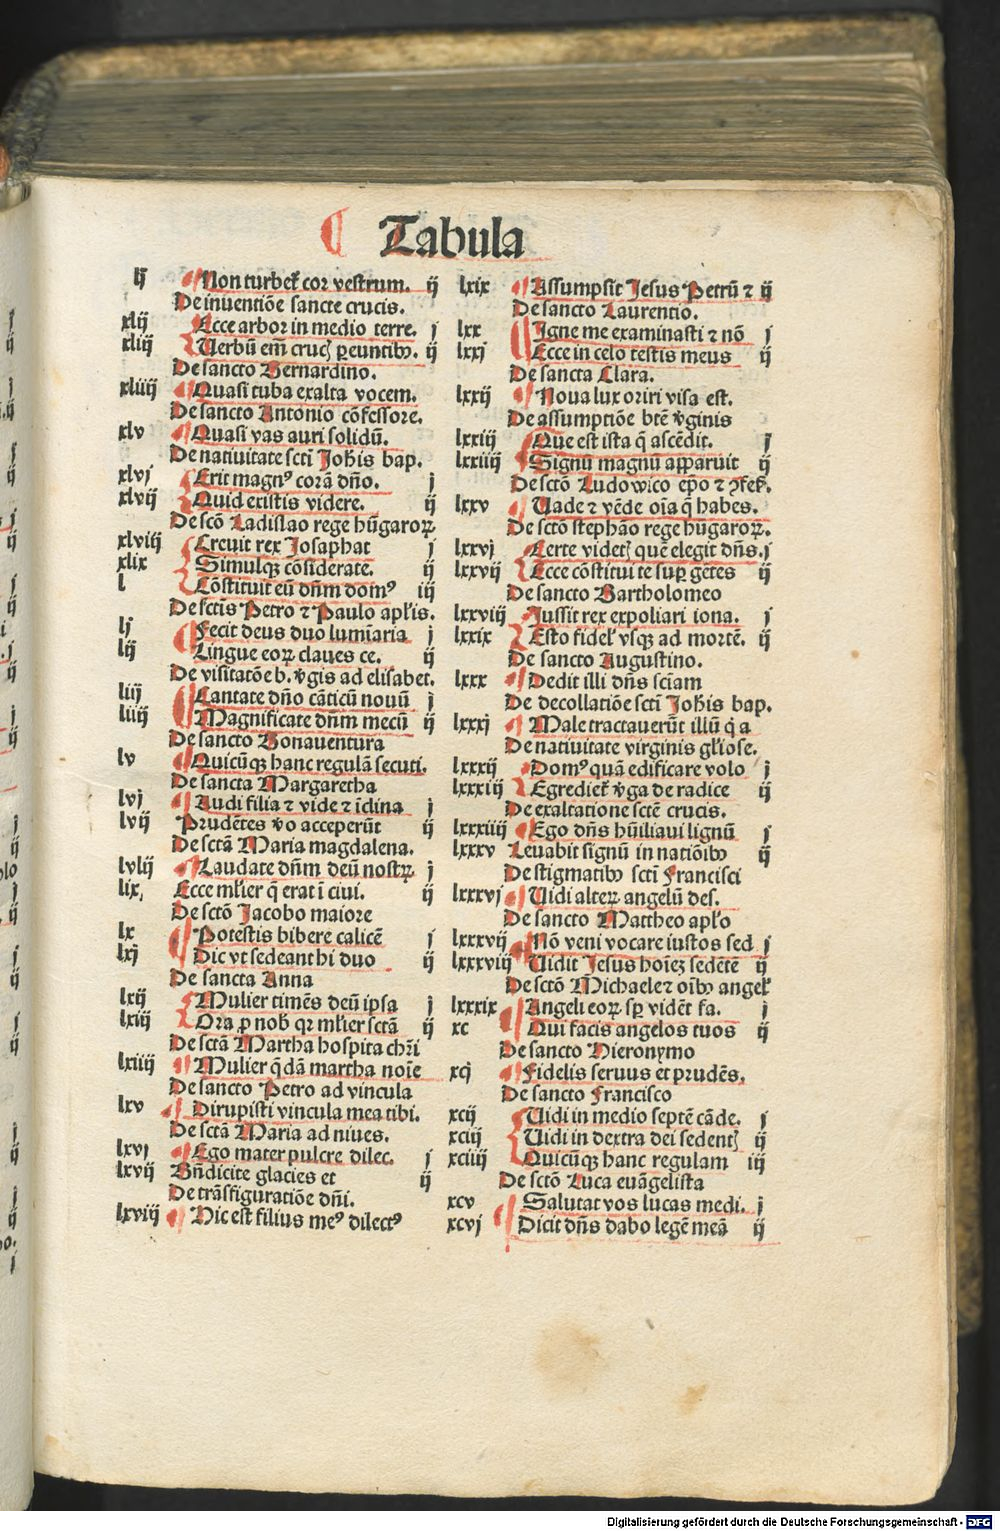 Tabula
lj Non turbet̃ cor vestrum. ij
De inuentiõe sancte crucis.
xlij Ecce arbor in medio terre. j
xliij Uerbũ em̃ crucꝭ pereuntibꝰ. ij
De sancto Bernardino.
xliiij Quasi tuba exalta vocem.
De sancto Antonio cõfessore.
xlv Quasi vas auri solidũ.
De natiuitate scti Joh̃is bap.
xlvj Erit magnꝰ corã dño. j
xlvij Quid existis videre. ij
De scõ Ladislao rege hũgaroꝝ
xlviij Creuit rex Josaphat j
xlix Simulqꝫ cõsiderate. ij
l Cõstituit eũ dñm domꝰ iij
De sctis Petro ⁊ Paulo apl̃is.
lj Fecit deus duo lumĩaria j
lij Lingue eoꝝ claues ce. ij
De visitatõe b. v̾gis ad elisabet.
liij Cantate dño cãticũ nouũ j
liiij Magnificate dñm mecũ ij
De sancto Bonauentura
lv Quicũqꝫ hanc regulã secuti.
De sancta Margaretha
lvj Audi filia ⁊ vide ⁊ ĩclina j
lvij Prudẽtes v̾o acceperũt ij
De sctã Maria magdalena.
lvlij Laudate dñm deũ nostꝝ j
lix, Ecce ml̃ier q̃ erat ĩ ciui. ij
De sctõ Jacobo maiore
lx Potestis bibere calicẽ j
lxj Dic vt sedeant hi duo ij
De sancta Anna
lxij Mulier timẽs deũ ipsa j
lxiij Ora ꝓ nob̃ qr ml̃ier sctã ij
De sctã Martha hospita chr̃i
lxiiij Mulier q̃dã martha noĩe
De sancto Petro ad vincula
lxv Dirupisti vincula mea tibi.
De sctã Maria ad niues.
lxvj Ego mater pulcre dilec. j
lxvij Bñdicite glacies et ij
De trãsfiguratiõe dñi.
lxviij Hic est filius meꝰ dilectꝰ
lxix Assumpsit Jesus Petrũ ⁊ ij
De sancto Laurentio.
lxx Igne me examinasti ⁊ nõ j
lxxj Ecce in celo testis meus ij
De sancta Clara.
lxxij Noua lux oriri visa est.
De assumptiõe btẽ v̾ginis
lxxiij Que est ista q̃ ascẽdit. j
lxxiiij Signũ magnũ apparuit ij
De sctõ Ludowico ep̃o ⁊ ꝯfes̃.
lxxv Uade ⁊ vẽde oĩa q̃ habes.
De sctõ stephão rege hũgaroꝝ.
lxxvj Certe videtꝭ quẽ elegit dñs. j
lxxvij Ecce cõstitui te suꝑ gẽtes ij
De sancto Bartholomeo
lxxviij Jussit rex expoliari iona. j
lxxix Esto fidel̃ vsqꝫ ad mortẽ. ij
De sancto Augustino.
lxxx Dedit illi dñs sciam
De decollatiõe scti Joh̃is bap.
lxxxj Male tractauerũt illũ q̃ a
De natiuitate virginis gl̃iose.
lxxxij Domꝰ quã edificare volo j
lxxxiij Egrediet̃ v̾ga de radice ij
De exaltatione sctẽ crucis.
lxxxiiij Ego dñs hũiliaui lignũ j
lxxxv Leuabit signũ in natiõibꝰ ij
De stigmatibꝰ scti Francisci
lxxxvj Uidi alteꝝ angelũ des.
De sancto Mattheo apl̃o
lxxxvij Nõ veni vocare iustos sed j
lxxxviij Uidit Jesus hoĩeꝫ sedẽtẽ ij
De sctõ Michaele ⁊ oĩbꝰ angel̃
lxxxix Angeli eoꝝ sꝑ vidẽt fa. j
xc Qui facis angelos tuos ij
De sancto Hieronymo
xcj Fidelis seruus et prudẽs,
De sancto Francisco
xcij Uidi in medio septẽ cãde. j
xciij Uidi in dextra dei sedentꝭ ij
xciiij Quicũqꝫ hanc regulam iij
De sctõ Luca euãgelista
xcv Salutat vos lucas medi. j
xcvj Dicit dñs dabo legẽ meã ij
Digitalisierung gefördert durch die Deutsche Forschungsgemeinschaft - DFG